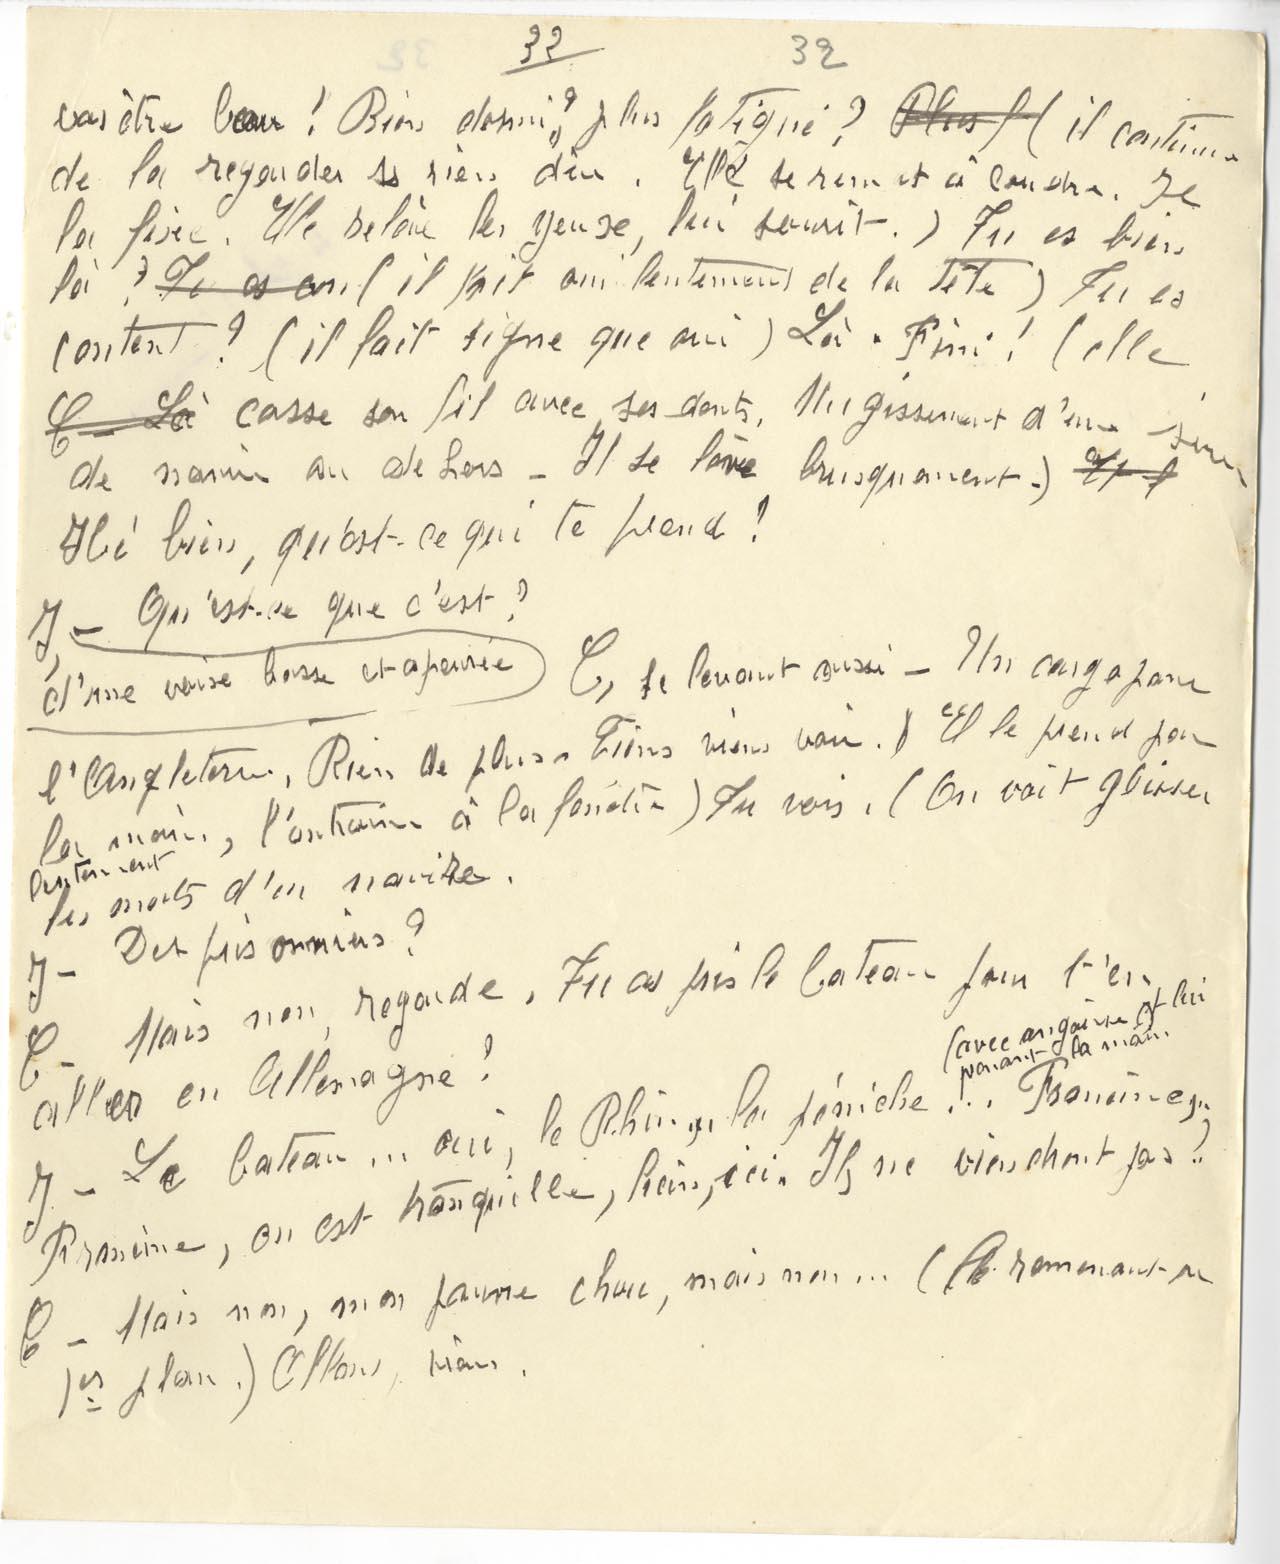 32 32
vas être beau ! Bien dormi ? plus fatigué ? Plus f ( il continue
de la regarder ss rien dire. Elle se remet à coudre. Il
la fixe. Elle relève les yeux, lui sourit. ) Tu es bien
là ? Tu es con ( il fait oui lentement de la tête ) Tu es
content ? ( il fait signe que oui ) Là. Fini ! ( elle
C - Là casse son fil avec ses dents. Mugissement d'une sirène
de navire au dehors - Il se lève brusquement. )
Hé bien, qu'est-ce qui te prend ?
J - Qu'est-ce que c'est ?
d'une voix basse et apeurée
C, se levant aussi - Un cargo pour
l'Angleterre. Rien de plus. Tiens viens voir. ) Elle le prend par
la main, l'entraîne à la fenêtre ) Tu vois. ( On voit glisser
lentement
les mats d'un navire.
J - Des prisonniers ?
C - Mais non, regarde. Tu as pris le bateau pour t'en
aller en Allemagne ?
(avec angoisse et lui
prenant la main.
J - Le bateau ... oui, le Rhin, la péniche ... Francine,
Francine, on est tranquille, hein, ici. Ils ne viendront pas ?
C - Mais non, mon pauvre chou, mais non ... ( le ramenant au
1er plan. ) Allons, viens.